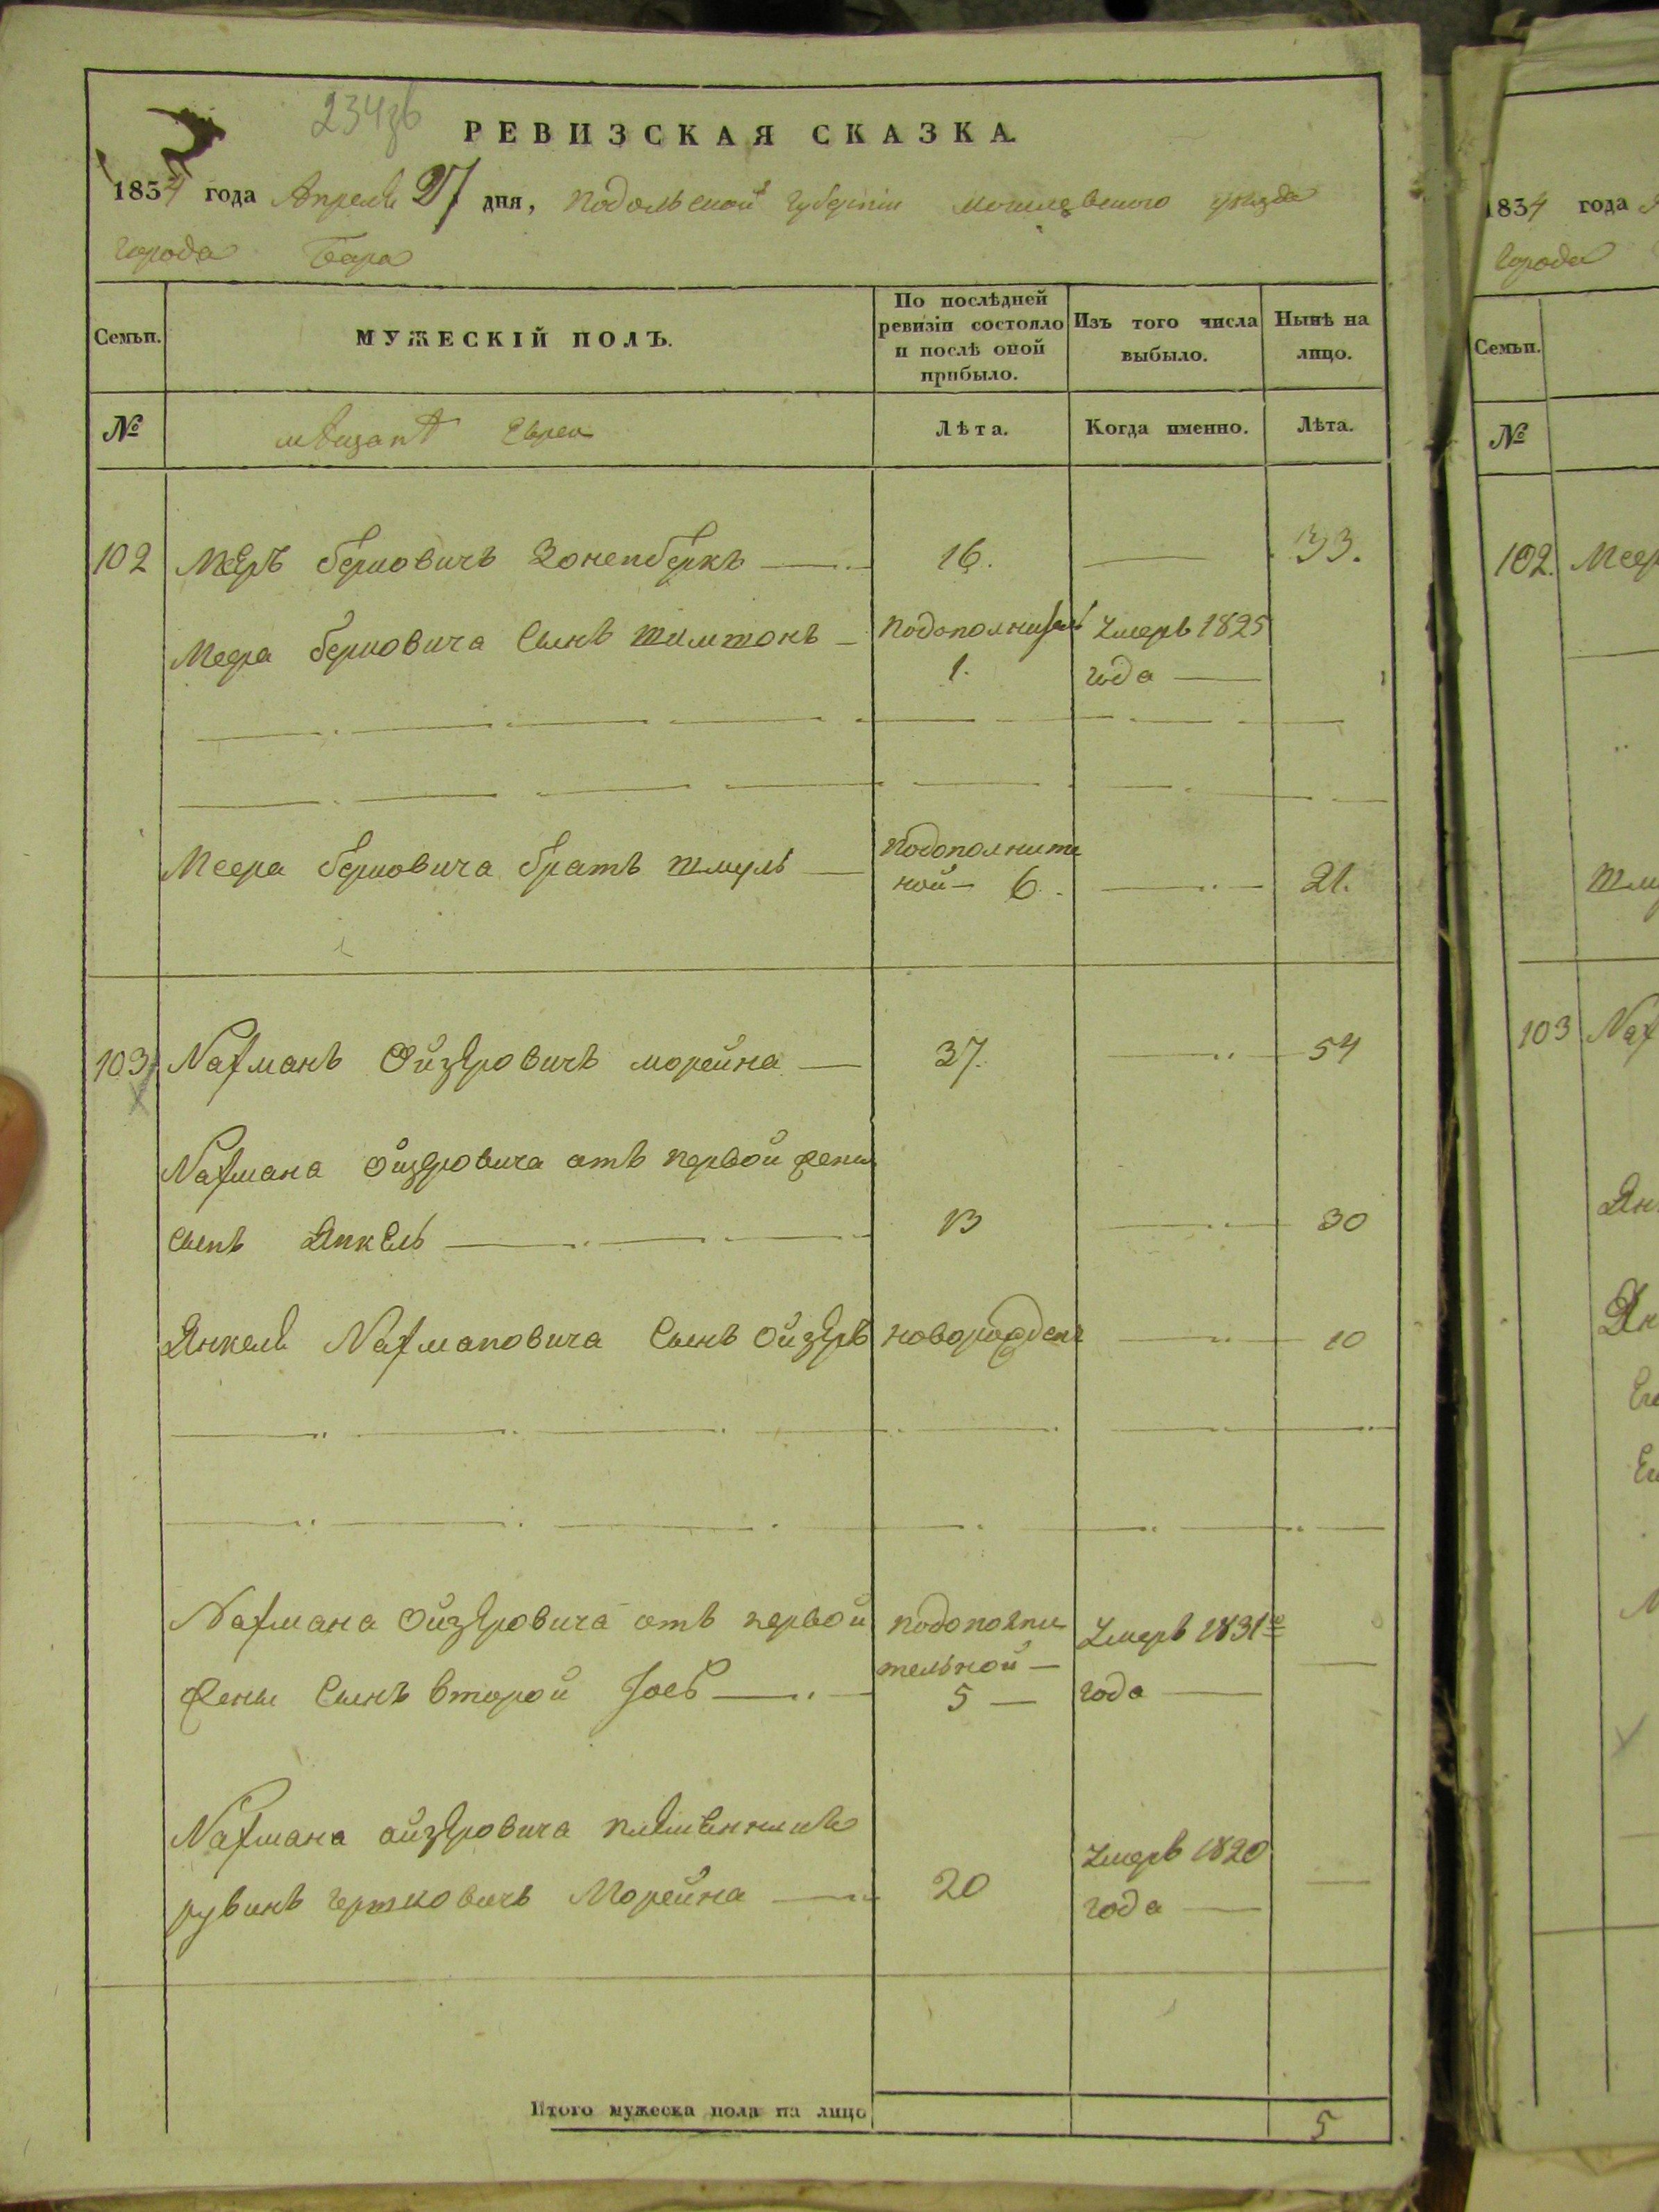 234зв
РЕВИЗСКАЯ СКАЗКА.
1834 года Апреля 27 дня, Подольской губернии Могилевского уѣзда
города Бара
Семьи.
МУЖЕСКІЙ ПОЛЪ.
По послѣдней
ревизіи состояло
и послѣ оной
прибыло.
Изъ того числа
выбыло.
Нынѣ на
лицо.
№
Евреи
Лѣта.
Когда именно.
Лѣта.
102 Меэръ берковичъ Зоненберкъ 16. 33.
Меера берковича Сынъ шимшонъ
1.
Умеръ 1825
года
Меера берковича братъ шмуль
Подополните
ной 6. 21.
103 Нахманъ Ойзэровичъ морейна 37. 54
Нахмана Ойзэровича отъ первой жены
сынъ Янкель 13 30
Янкеля Нахмановича Сынъ Ойзэръ новорожденъ 10
Нахмана Ойзэровича отъ первой
жены Сынъ второй Иосъ
подополни
тельной
5
Умеръ 1831го
года
Нахмана ойзэровича племенникъ
рувинъ гершковичъ Морейна 20
Умеръ 1820
года
Итого мужеска пола на лицо 5
1834 года
города
Семьи.
№
102. Меер
103 Нах